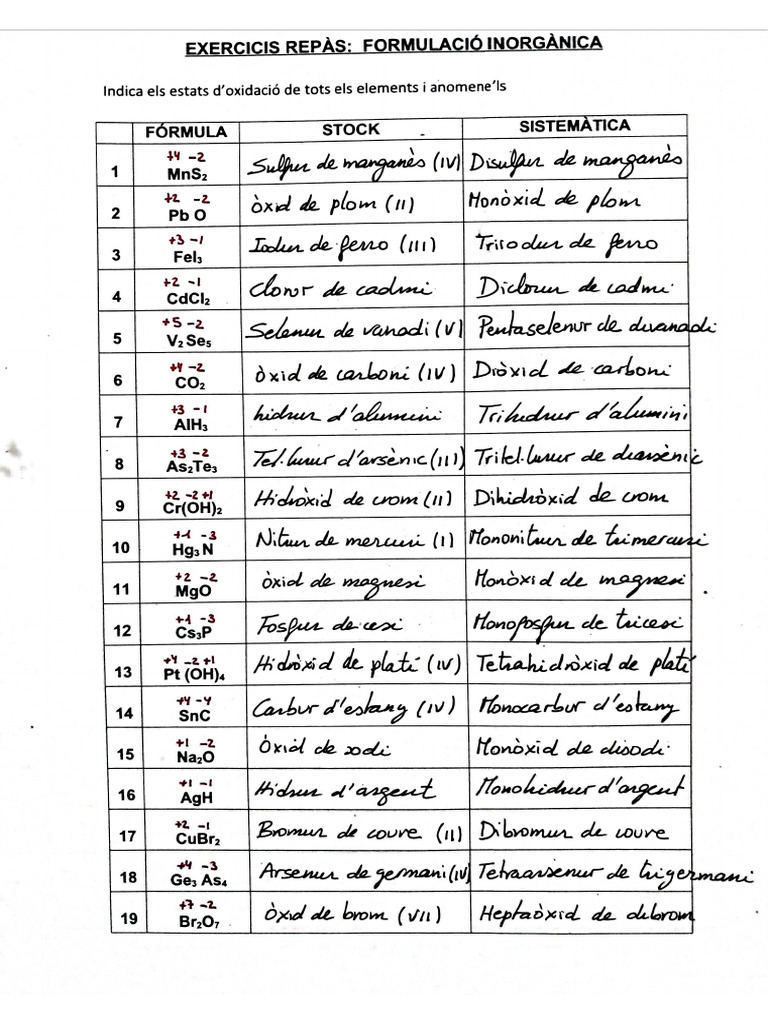 EXERCICIS REPÀS: FORMULACIÓ INORGÀNICA
Indica els estats d'oxidació de tots els elements i anomene'ls
FÓRMULA STOCK SISTEMÀTICA
+4 -2
1 MnS₂ Sulfur de manganès (IV) Disulfur de manganès
+2 -2
2 Pb O òxid de plom (II) Monòxid de plom
+3 -1
3 FeI₃ Iodur de ferro (III) Triiodur de ferro
+2 -1
4 CdCl₂ Clorur de cadmi Diclorur de cadmi
+5 -2
5 V₂Se₅ Selenur de vanadi (V) Pentaselenur de divanadi
+4 -2
6 CO₂ òxid de carboni (IV) Diòxid de carboni
+3 -1
7 AlH₃ hidrur d'alumini Trihidrur d'alumini
+3 -2
8 As₂Te₃ Tel.lurur d'arsènic (III) Tritel.lurur de diarsènic
+2 -2 +1
9 Cr(OH)₂ Hidròxid de crom (II) Dihidròxid de crom
+1 -3
10 Hg₃N Nitrur de mercuri (I) Mononitrur de trimercuri
+2 -2
11 MgO òxid de magnesi Monòxid de magnesi
+1 -3
12 Cs₃P Fosfur de cesi Monofosfur de tricesi
+4 -2 +1
13 Pt (OH)₄ Hidròxid de platí (IV) Tetrahidròxid de platí
+4 -4
14 SnC Carbur d'estany (IV) Monocarbur d'estany
+1 -2
15 Na₂O Òxid de sodi Monòxid de disodi
+1 -1
16 AgH Hidrur d'argent Monohidrur d'argent
+2 -1
17 CuBr₂ Bromur de coure (II) Dibromur de coure
+4 -3
18 Ge₃ As₄ Arsenur de germani (IV) Tetraarsenur de trigermani
+7 -2
19 Br₂O₇ Òxid de brom (VII) Heptaòxid de dibrom